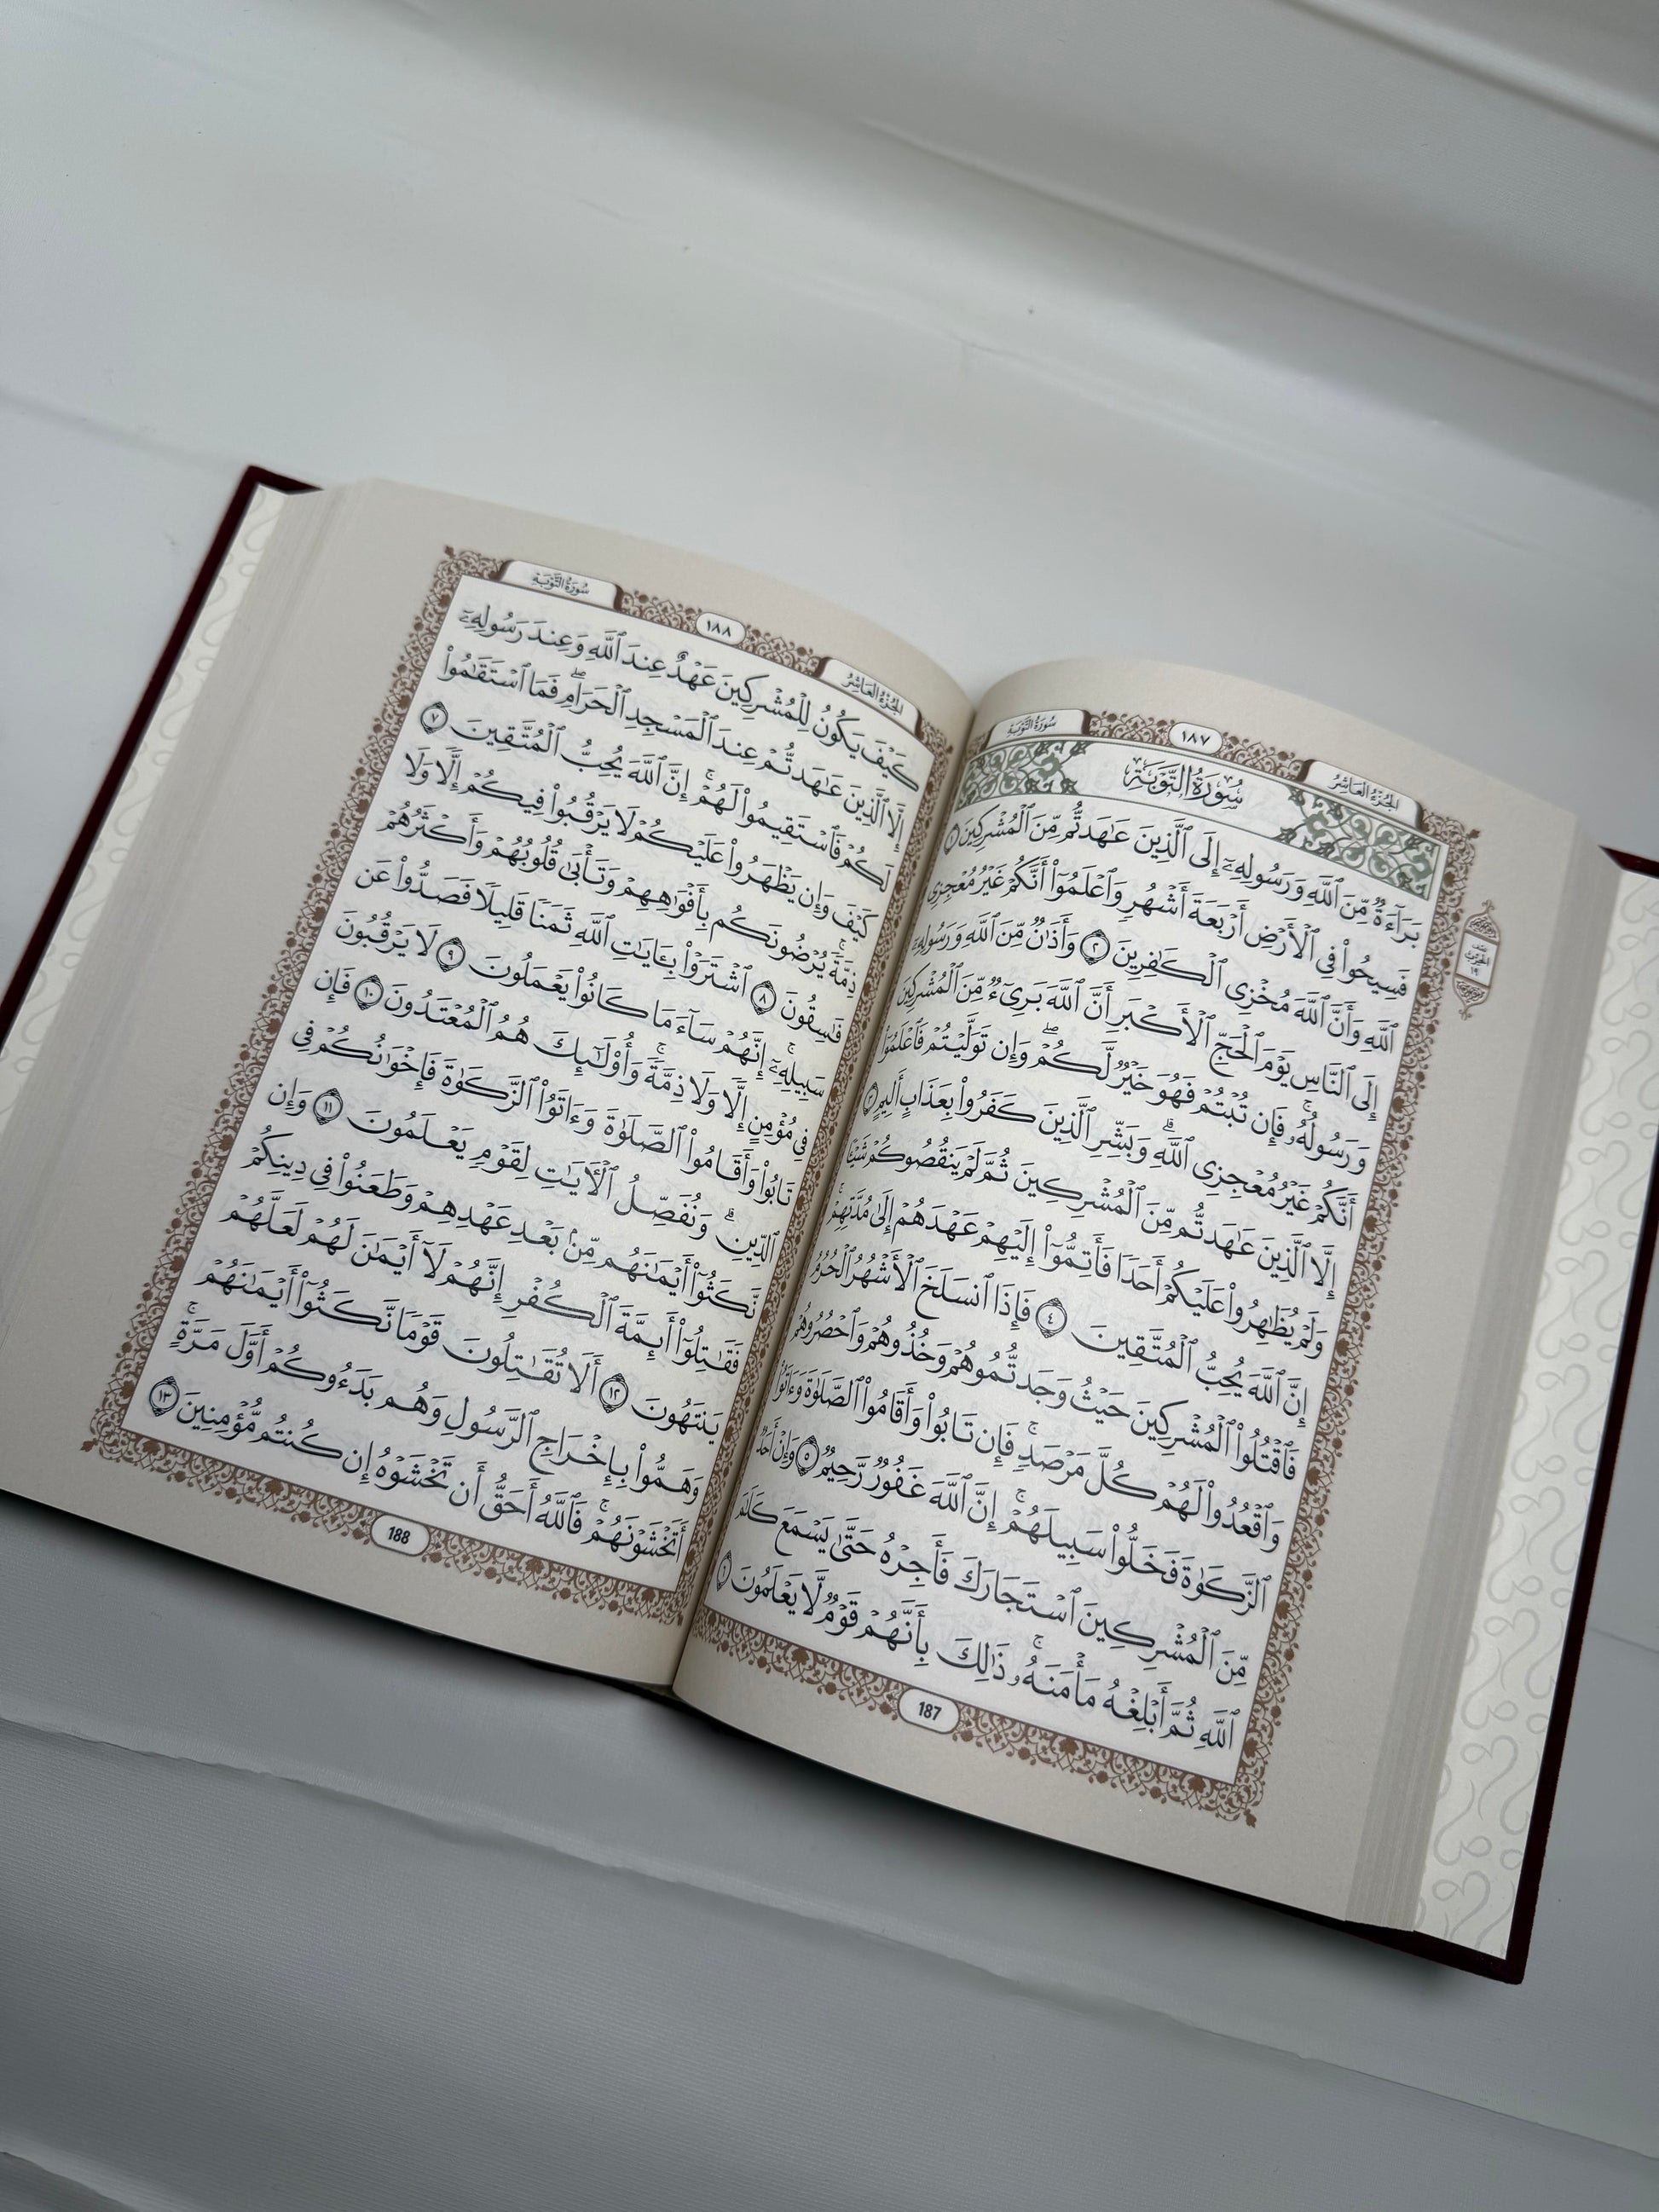 سُورَةُ التَّوۡبَةِ
١٨٧
الجُزۡءُ العَاشِرُ
سُورَةُ التَّوۡبَةِ
بَرَآءَةٞ مِّنَ ٱللَّهِ وَرَسُولِهِۦٓ إِلَى ٱلَّذِينَ عَٰهَدتُّم مِّنَ ٱلۡمُشۡرِكِينَ ١
فَسِيحُواْ فِي ٱلۡأَرۡضِ أَرۡبَعَةَ أَشۡهُرٖ وَٱعۡلَمُوٓاْ أَنَّكُمۡ غَيۡرُ مُعۡجِزِي
ٱللَّهِ وَأَنَّ ٱللَّهَ مُخۡزِي ٱلۡكَٰفِرِينَ ٢ وَأَذَٰنٞ مِّنَ ٱللَّهِ وَرَسُولِهِۦٓ
إِلَى ٱلنَّاسِ يَوۡمَ ٱلۡحَجِّ ٱلۡأَكۡبَرِ أَنَّ ٱللَّهَ بَرِيٓءٞ مِّنَ ٱلۡمُشۡرِكِينَ
وَرَسُولُهُۥۚ فَإِن تُبۡتُمۡ فَهُوَ خَيۡرٞ لَّكُمۡۖ وَإِن تَوَلَّيۡتُمۡ فَٱعۡلَمُوٓاْ
أَنَّكُمۡ غَيۡرُ مُعۡجِزِي ٱللَّهِۗ وَبَشِّرِ ٱلَّذِينَ كَفَرُواْ بِعَذَابٍ أَلِيمٍ ٣
إِلَّا ٱلَّذِينَ عَٰهَدتُّم مِّنَ ٱلۡمُشۡرِكِينَ ثُمَّ لَمۡ يَنقُصُوكُمۡ شَيۡـٔٗا
وَلَمۡ يُظَٰهِرُواْ عَلَيۡكُمۡ أَحَدٗا فَأَتِمُّوٓاْ إِلَيۡهِمۡ عَهۡدَهُمۡ إِلَىٰ مُدَّتِهِمۡۚ
إِنَّ ٱللَّهَ يُحِبُّ ٱلۡمُتَّقِينَ ٤ فَإِذَا ٱنسَلَخَ ٱلۡأَشۡهُرُ ٱلۡحُرُمُ
فَٱقۡتُلُواْ ٱلۡمُشۡرِكِينَ حَيۡثُ وَجَدتُّمُوهُمۡ وَخُذُوهُمۡ وَٱحۡصُرُوهُمۡ
وَٱقۡعُدُواْ لَهُمۡ كُلَّ مَرۡصَدٖۚ فَإِن تَابُواْ وَأَقَامُواْ ٱلصَّلَوٰةَ وَءَاتَوُاْ
ٱلزَّكَوٰةَ فَخَلُّواْ سَبِيلَهُمۡۚ إِنَّ ٱللَّهَ غَفُورٞ رَّحِيمٞ ٥ وَإِنۡ أَحَدٞ
مِّنَ ٱلۡمُشۡرِكِينَ ٱسۡتَجَارَكَ فَأَجِرۡهُ حَتَّىٰ يَسۡمَعَ كَلَٰمَ
ٱللَّهِ ثُمَّ أَبۡلِغۡهُ مَأۡمَنَهُۥۚ ذَٰلِكَ بِأَنَّهُمۡ قَوۡمٞ لَّا يَعۡلَمُونَ ٦
187
نصف
الحزب
١٩
سُورَةُ التَّوۡبَةِ
١٨٨
الجُزۡءُ العَاشِرُ
كَيۡفَ يَكُونُ لِلۡمُشۡرِكِينَ عَهۡدٌ عِندَ ٱللَّهِ وَعِندَ رَسُولِهِۦٓ
إِلَّا ٱلَّذِينَ عَٰهَدتُّمۡ عِندَ ٱلۡمَسۡجِدِ ٱلۡحَرَامِۖ فَمَا ٱسۡتَقَٰمُواْ
لَكُمۡ فَٱسۡتَقِيمُواْ لَهُمۡۚ إِنَّ ٱللَّهَ يُحِبُّ ٱلۡمُتَّقِينَ ٧
كَيۡفَ وَإِن يَظۡهَرُواْ عَلَيۡكُمۡ لَا يَرۡقُبُواْ فِيكُمۡ إِلّٗا وَلَا
ذِمَّةٗۚ يُرۡضُونَكُم بِأَفۡوَٰهِهِمۡ وَتَأۡبَىٰ قُلُوبُهُمۡ وَأَكۡثَرُهُمۡ
فَٰسِقُونَ ٨ ٱشۡتَرَوۡاْ بِـَٔايَٰتِ ٱللَّهِ ثَمَنٗا قَلِيلٗا فَصَدُّواْ عَن
سَبِيلِهِۦٓۚ إِنَّهُمۡ سَآءَ مَا كَانُواْ يَعۡمَلُونَ ٩ لَا يَرۡقُبُونَ
فِي مُؤۡمِنٍ إِلّٗا وَلَا ذِمَّةٗۚ وَأُوْلَٰٓئِكَ هُمُ ٱلۡمُعۡتَدُونَ ١٠ فَإِن
تَابُواْ وَأَقَامُواْ ٱلصَّلَوٰةَ وَءَاتَوُاْ ٱلزَّكَوٰةَ فَإِخۡوَٰنُكُمۡ فِي
ٱلدِّينِۗ وَنُفَصِّلُ ٱلۡأٓيَٰتِ لِقَوۡمٖ يَعۡلَمُونَ ١١ وَإِن
نَّكَثُوٓاْ أَيۡمَٰنَهُم مِّنۢ بَعۡدِ عَهۡدِهِمۡ وَطَعَنُواْ فِي دِينِكُمۡ
فَقَٰتِلُوٓاْ أَئِمَّةَ ٱلۡكُفۡرِ إِنَّهُمۡ لَآ أَيۡمَٰنَ لَهُمۡ لَعَلَّهُمۡ
يَنتَهُونَ ١٢ أَلَا تُقَٰتِلُونَ قَوۡمٗا نَّكَثُوٓاْ أَيۡمَٰنَهُمۡ
وَهَمُّواْ بِإِخۡرَاجِ ٱلرَّسُولِ وَهُم بَدَءُوكُمۡ أَوَّلَ مَرَّةٍۚ
أَتَخۡشَوۡنَهُمۡۚ فَٱللَّهُ أَحَقُّ أَن تَخۡشَوۡهُ إِن كُنتُم مُّؤۡمِنِينَ ١٣
188